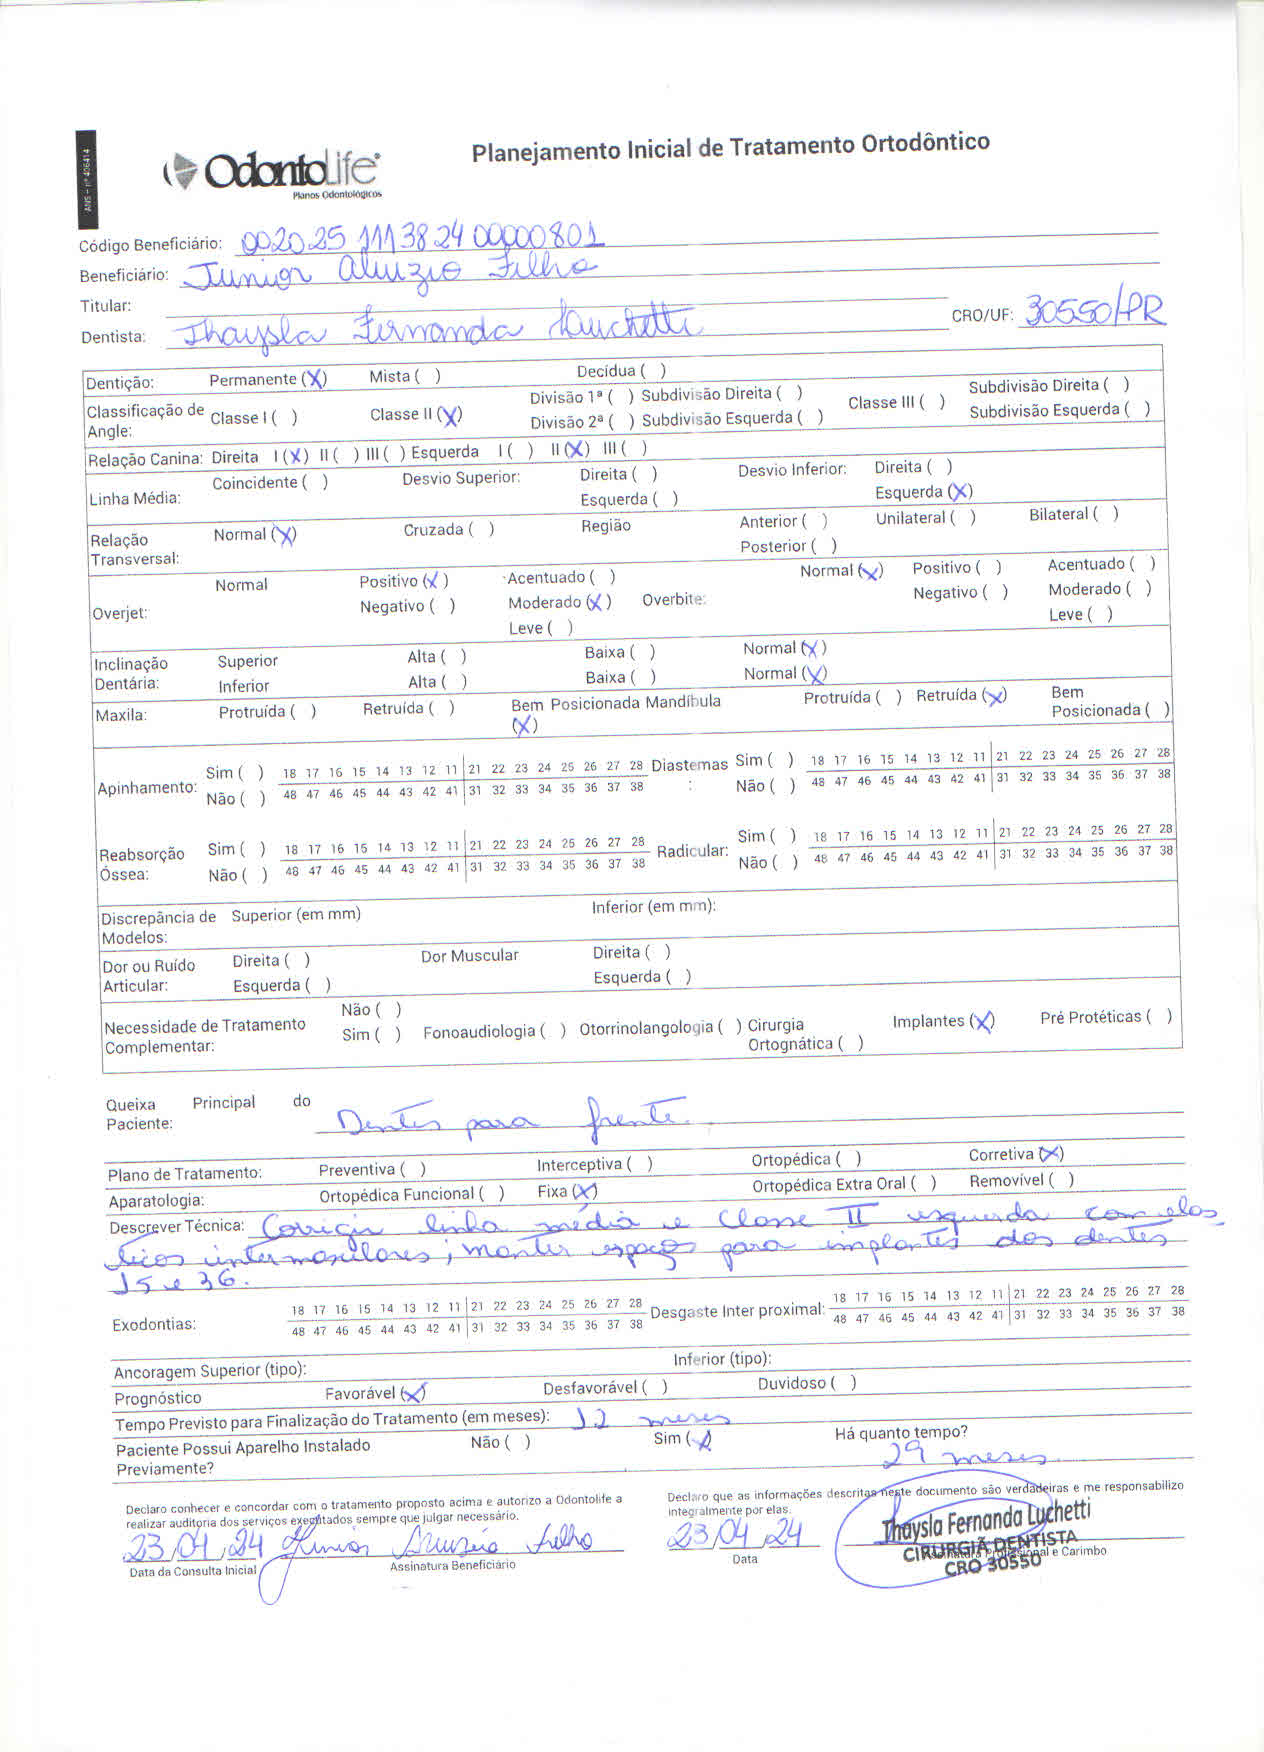 ANS - nº 406414
OdontoLife
Planos Odontológicos
Planejamento Inicial de Tratamento Ortodôntico
Código Beneficiário: 002025111382400000801
Beneficiário: Junior Aluizio Filho
Titular:
Dentista: Thaysla Fernanda Luchetti CRO/UF: 30550/PR
Dentição: Permanente (X) Mista ( ) Decídua ( )
Classificação de Angle: Classe I ( ) Classe II (X) Divisão 1ª ( ) Subdivisão Direita ( ) Classe III ( ) Subdivisão Direita ( )
Divisão 2ª ( ) Subdivisão Esquerda ( ) Subdivisão Esquerda ( )
Relação Canina: Direita I (X) II ( ) III ( ) Esquerda I ( ) II (X) III ( )
Linha Média: Coincidente ( ) Desvio Superior: Direita ( ) Desvio Inferior: Direita ( )
Esquerda ( ) Esquerda (X)
Relação Transversal: Normal (X) Cruzada ( ) Região Anterior ( ) Unilateral ( ) Bilateral ( )
Posterior ( )
Overjet: Normal Positivo (X) Acentuado ( ) Overbite: Normal (X) Positivo ( ) Acentuado ( )
Negativo ( ) Moderado (X) Negativo ( ) Moderado ( )
Leve ( ) Leve ( )
Inclinação Dentária: Superior Alta ( ) Baixa ( ) Normal (X)
Inferior Alta ( ) Baixa ( ) Normal (X)
Maxila: Protruída ( ) Retruída ( ) Bem Posicionada (X) Mandíbula Protruída ( ) Retruída (X) Bem Posicionada ( )
Apinhamento: Sim ( ) 18 17 16 15 14 13 12 11 21 22 23 24 25 26 27 28 Diastemas: Sim ( ) 18 17 16 15 14 13 12 11 21 22 23 24 25 26 27 28
Não ( ) 48 47 46 45 44 43 42 41 31 32 33 34 35 36 37 38 Não ( ) 48 47 46 45 44 43 42 41 31 32 33 34 35 36 37 38
Reabsorção Óssea: Sim ( ) 18 17 16 15 14 13 12 11 21 22 23 24 25 26 27 28 Radicular: Sim ( ) 18 17 16 15 14 13 12 11 21 22 23 24 25 26 27 28
Não ( ) 48 47 46 45 44 43 42 41 31 32 33 34 35 36 37 38 Não ( ) 48 47 46 45 44 43 42 41 31 32 33 34 35 36 37 38
Discrepância de Modelos: Superior (em mm) Inferior (em mm):
Dor ou Ruído Articular: Direita ( ) Dor Muscular Direita ( )
Esquerda ( ) Esquerda ( )
Necessidade de Tratamento Complementar: Não ( )
Sim ( ) Fonoaudiologia ( ) Otorrinolangologia ( ) Cirurgia Ortognática ( ) Implantes (X) Pré Protéticas ( )
Queixa Principal do Paciente: Dentes para frente.
Plano de Tratamento: Preventiva ( ) Interceptiva ( ) Ortopédica ( ) Corretiva (X)
Aparatologia: Ortopédica Funcional ( ) Fixa (X) Ortopédica Extra Oral ( ) Removível ( )
Descrever Técnica: Corrigir linha média e Classe II esquerda com elás
ticos intermaxilares; manter espaços para implantes dos dentes
15 e 36.
Exodontias: 18 17 16 15 14 13 12 11 21 22 23 24 25 26 27 28 Desgaste Inter proximal: 18 17 16 15 14 13 12 11 21 22 23 24 25 26 27 28
48 47 46 45 44 43 42 41 31 32 33 34 35 36 37 38 48 47 46 45 44 43 42 41 31 32 33 34 35 36 37 38
Ancoragem Superior (tipo): Inferior (tipo):
Prognóstico Favorável (X) Desfavorável ( ) Duvidoso ( )
Tempo Previsto para Finalização do Tratamento (em meses): 12 meses
Paciente Possui Aparelho Instalado Previamente? Não ( ) Sim (X) Há quanto tempo?
29 meses.
Declaro conhecer e concordar com o tratamento proposto acima e autorizo a Odontolife a
realizar auditoria dos serviços executados sempre que julgar necessário.
Declaro que as informações descritas neste documento são verdadeiras e me responsabilizo
integralmente por elas.
23/04/24 Junior Aluizio Filho 23/04/24
Data da Consulta Inicial Assinatura Beneficiário Data Assinatura Profissional e Carimbo
Thaysla Fernanda Luchetti
CIRURGIÃ DENTISTA
CRO 30550